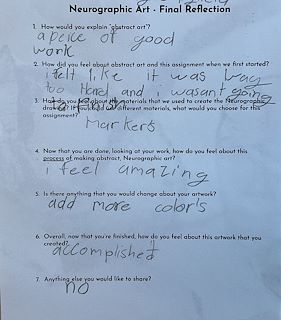 Neurographic Art - Final Reflection
1. How would you explain "abstract art"?
a peice of good
work
2. How did you feel about abstract art and this assignment when we first started?
i felt like it was way
too Hard and i wasant going
to finish
3. How do you feel about the materials that we used to create the Neurographic
drawing? If you could use different materials, what would you choose for this
assignment?
Markers
4. Now that you are done, looking at your work, how do you feel about this
process of making abstract, Neurographic art?
i feel amazing
5. Is there anything that you would change about your artwork?
add more color's
6. Overall, now that you're finished, how do you feel about this artwork that you
created?
accomplished
7. Anything else you would like to share?
no